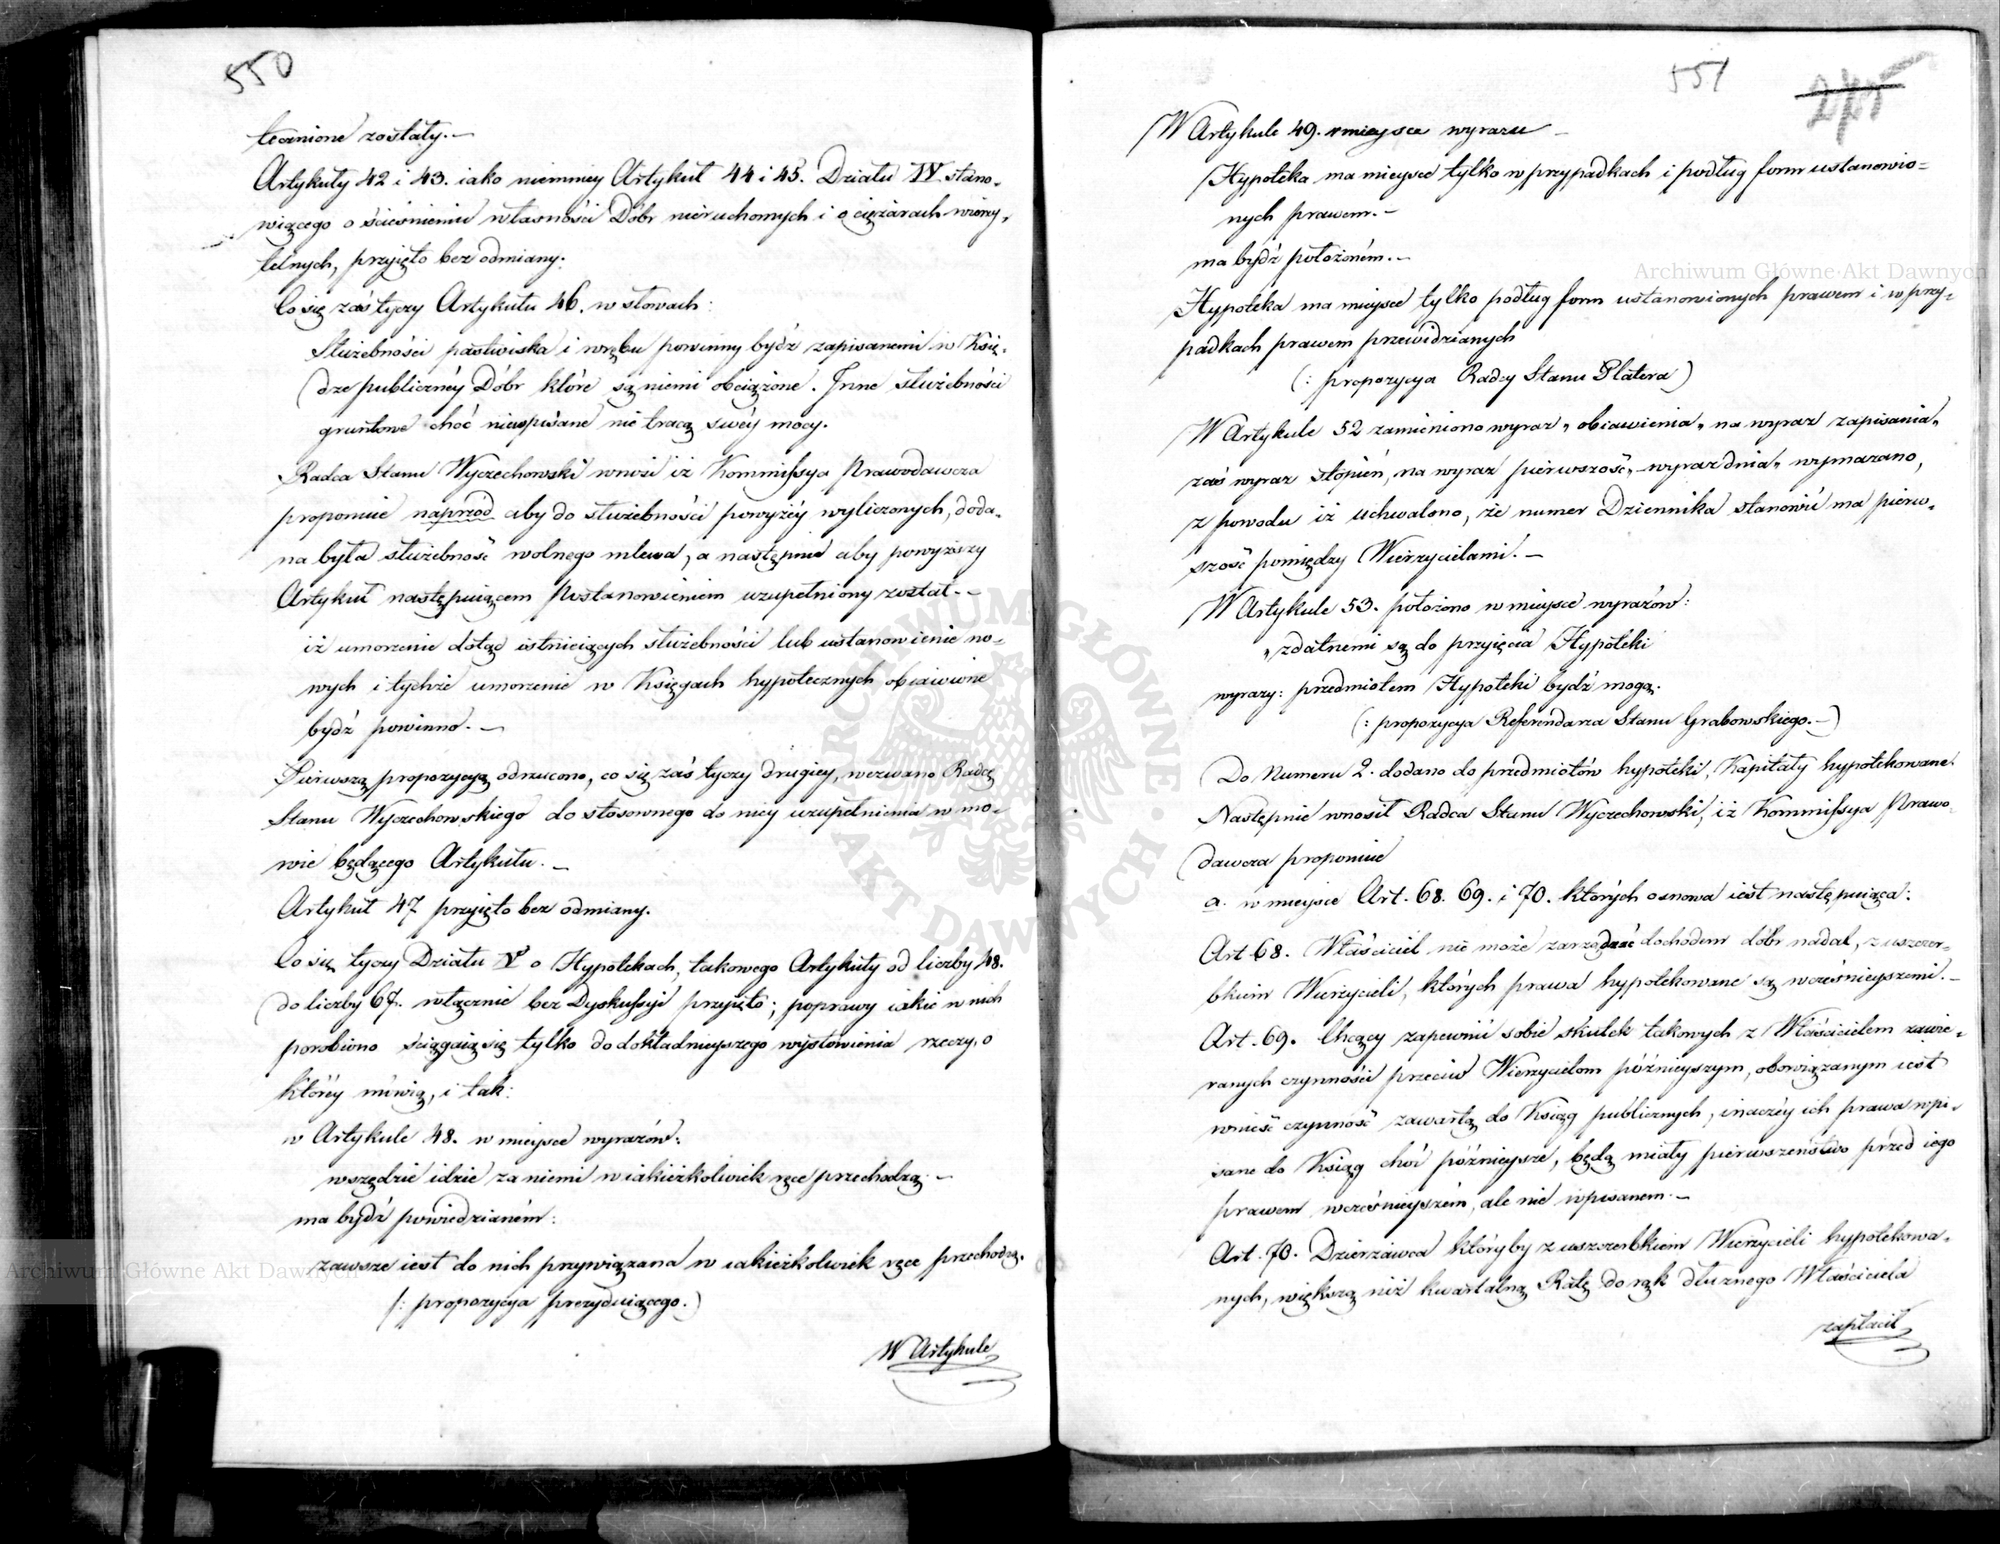 550
tecznione zostały.—
Artykuły 42 i 43. iako niemniey Artykuł 44 i 45. Działu IV. stano-
wiącego o ścieśnieniu własności Dóbr nieruchomych i o ciężarach wieczy-
telnych, przyięto bez odmiany.
Co się zaś tyczy Artykułu 46. w słowach:
Służebności pastwiska i wrębu powinny bydź zapisanemi w Księ-
dze publicznéy Dóbr które są niemi obciążone. Inne służebności
gruntowe choć niewpisane nie tracą swéy mocy.
Radca Stanu Wyczechowski wnosi iż Kommissya Prawodawcza
proponuie naprzód aby do służebności powyżéy wyliczonych, doda-
na była służebność wolnego mlewa, a następnie aby powyższy
Artykuł następuiącem Postanowieniem uzupełniony został.—
iż umorzenie dotąd istnieiących służebności lub ustanowienie no-
wych i tychże umorzenie w Księgach hypotecznych obiawione
bydź powinno.—
Pierwszą propozycyą odrzucono, co się zaś tyczy drugiey, wezwano Radcę
Stanu Wyczechowskiego do stosownego do niey uzupełnienia w mo-
wie będącego Artykułu.—
Artykuł 47 przyięto bez odmiany.
Co się tyczy Działu V o Hypotekach, takowego Artykuły od liczby 48.
do liczby 67. włącznie bez Dyskussyi przyięto; poprawy iakie w nich
porobiono ściągaią się tylko do dokładnieyszego wysłowienia rzeczy, o
któréy mówią, i tak:
w Artykule 48. w mieysce wyrazów:
wszędzie idzie za niemi w iakieżkolwiek ręce przechodzą.—
ma bydź powiedzianém:
zawsze iest do nich przywiązana w iakieżkolwiek ręce przechodzą.
(: propozycya prezyduiącego.)
W Artykule
551
275
W Artykule 49. w mieysce wyrazu —
Hypoteka ma mieysce tylko w przypadkach i podług form ustanowio-
nych prawem.—
ma bydź położoném.—
Hypoteka ma mieysce tylko podług form ustanowionych prawem i w przy-
padkach prawem przewidzianych
(: propozycya Radcy Stanu Platera)
W Artykule 52 zamieniono wyraz „ obiawienia „ na wyraz zapisania „
zaś wyraz stopień, na wyraz pierwszość „ wyraz dnia „ wymazano,
z powodu iż uchwalono, że numer Dziennika stanowić ma pierw-
szość pomiędzy Wierzycielami.—
W Artykule 53. położono w mieysce wyrazów:
„ zdatnemi są do przyięcia Hypoteki
wyrazy: przedmiotem Hypoteki bydź mogą.
(: propozycya Referendarza Stanu Grabowskiego.—)
Do Numeru 2. dodano do przedmiotów hypoteki, Kapitały hypotekowane.
Następnie wnosił Radca Stanu Wyczechowski, iż Kommissya Prawo-
dawcza proponuie
a. w mieysce Art. 68. 69. i 70. których osnowa iest następuiąca:
Art. 68. Właściciel nie może zarządzać dochodem dóbr nadal, z uszczer-
bkiem Wierzycieli, których prawa hypotekowane są wcześnieyszemi.—
Art. 69. Chcący zapewnić sobie skutek takowych z Właścicielem zawie-
ranych czynności przeciw Wierzycielom późnieyszym, obowiązanym iest
wnieść czynność zawartą do Ksiąg publicznych, inaczéy ich prawa wpi-
sane do Ksiąg choć późnieysze, będą miały pierwszeństwo przed iego
prawem wcześnieyszém, ale nie wpisanem.—
Art. 70. Dzierżawca któryby z uszczerbkiem Wierzycieli hypotekowa-
nych, większą niż kwartalną Ratę do rąk dłużnego Właściciela
zapłacił
Archiwum Główne Akt Dawnych
Archiwum Główne Akt Dawnych
ARCHIWUM GŁÓWNE · AKT DAWNYCH ·